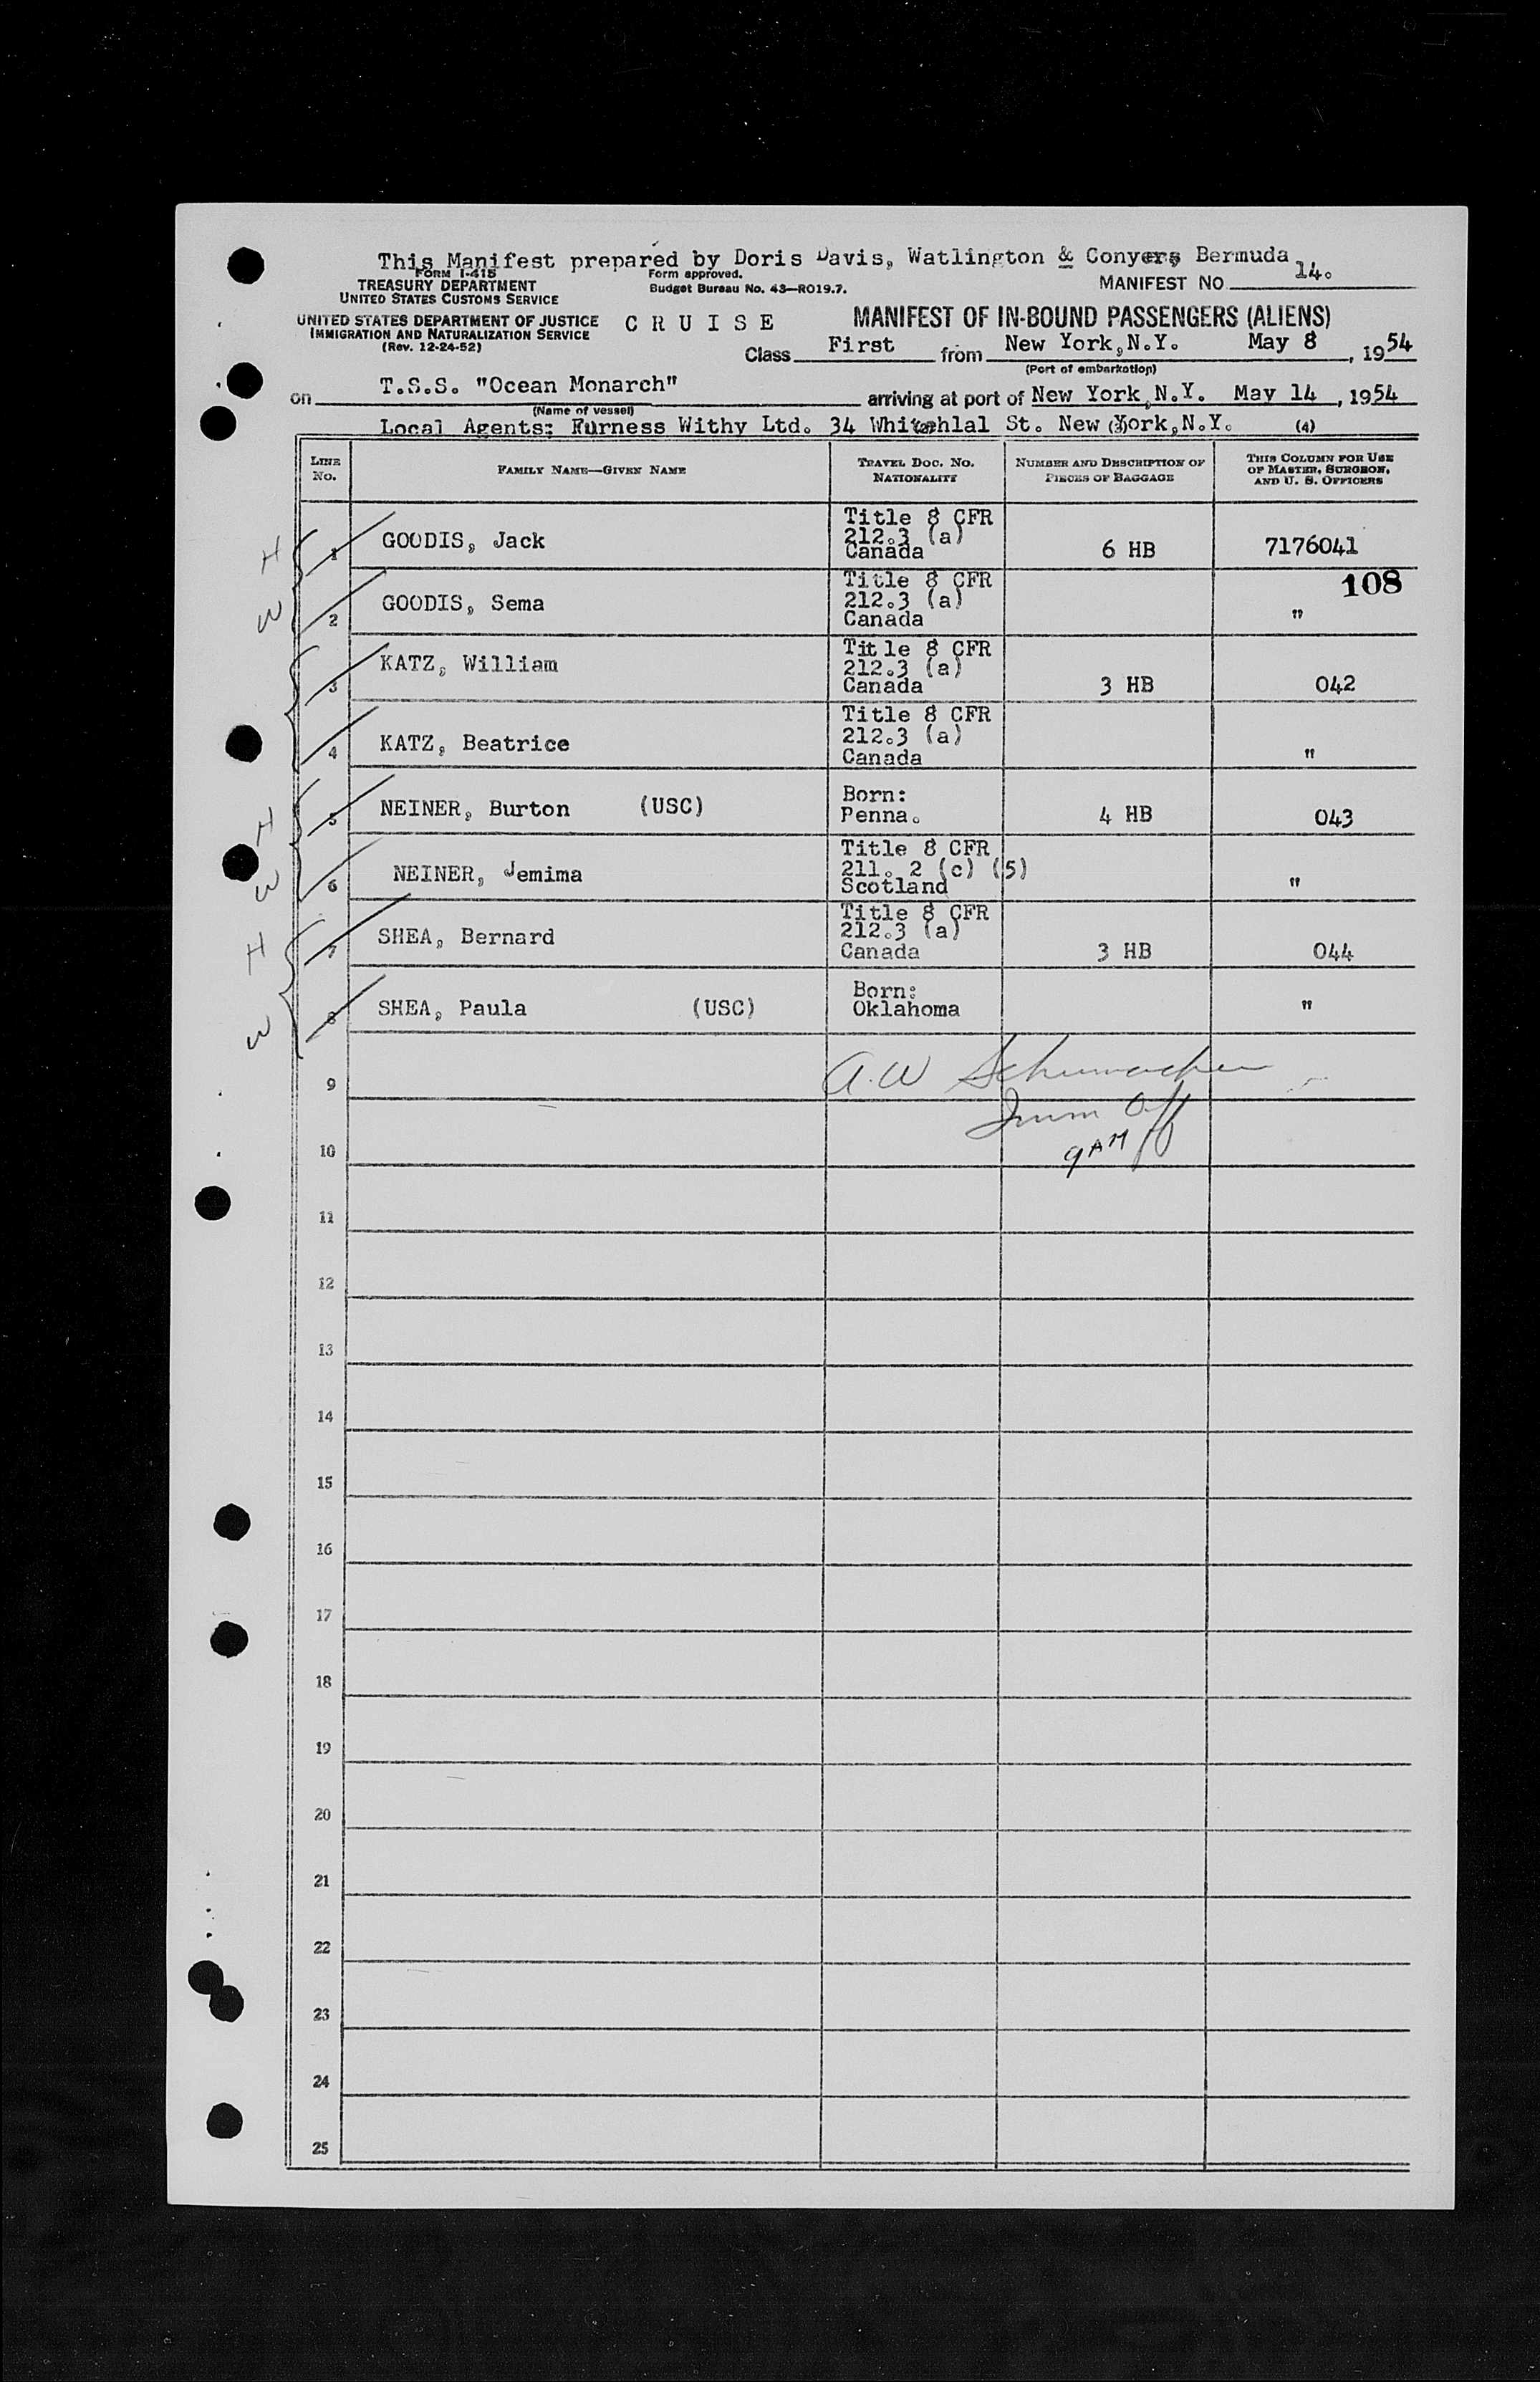 This Manifest prepared by Doris Davis, Watlington & Conyers Bermuda
FORM I-415
TREASURY DEPARTMENT
UNITED STATES CUSTOMS SERVICE
Form approved.
Budget Bureau No. 43—RO19.7.
MANIFEST NO. 14.
UNITED STATES DEPARTMENT OF JUSTICE
IMMIGRATION AND NATURALIZATION SERVICE
(Rev. 12-24-52)
C R U I S E
MANIFEST OF IN-BOUND PASSENGERS (ALIENS)
Class First from New York,N.Y. May 8, 1954
(Port of embarkation)
on T.S.S. "Ocean Monarch" arriving at port of New York,N.Y. May 14, 1954
(Name of vessel)
Local Agents: Furness Withy Ltd. 34 Whitehlal St. New York,N.Y.
(2) (3) (4)
LINE No. FAMILY NAME—GIVEN NAME TRAVEL DOC. NO. NATIONALITY NUMBER AND DESCRIPTION OF PIECES OF BAGGAGE THIS COLUMN FOR USE OF MASTER, SURGEON, AND U. S. OFFICERS
H 1 GOODIS, Jack Title 8 CFR 212.3 (a) Canada 6 HB 7176041
108
W 2 GOODIS, Sema Title 8 CFR 212.3 (a) Canada "
3 KATZ, William Title 8 CFR 212.3 (a) Canada 3 HB 042
4 KATZ, Beatrice Title 8 CFR 212.3 (a) Canada "
H 5 NEINER, Burton (USC) Born: Penna. 4 HB 043
W 6 NEINER, Jemima Title 8 CFR 211. 2 (c) (5) Scotland "
H 7 SHEA, Bernard Title 8 CFR 212.3 (a) Canada 3 HB 044
W 8 SHEA, Paula (USC) Born: Oklahoma "
A.W Schumacher
9
Imm Off
10
9 AM
11
12
13
14
15
16
17
18
19
20
21
22
23
24
25